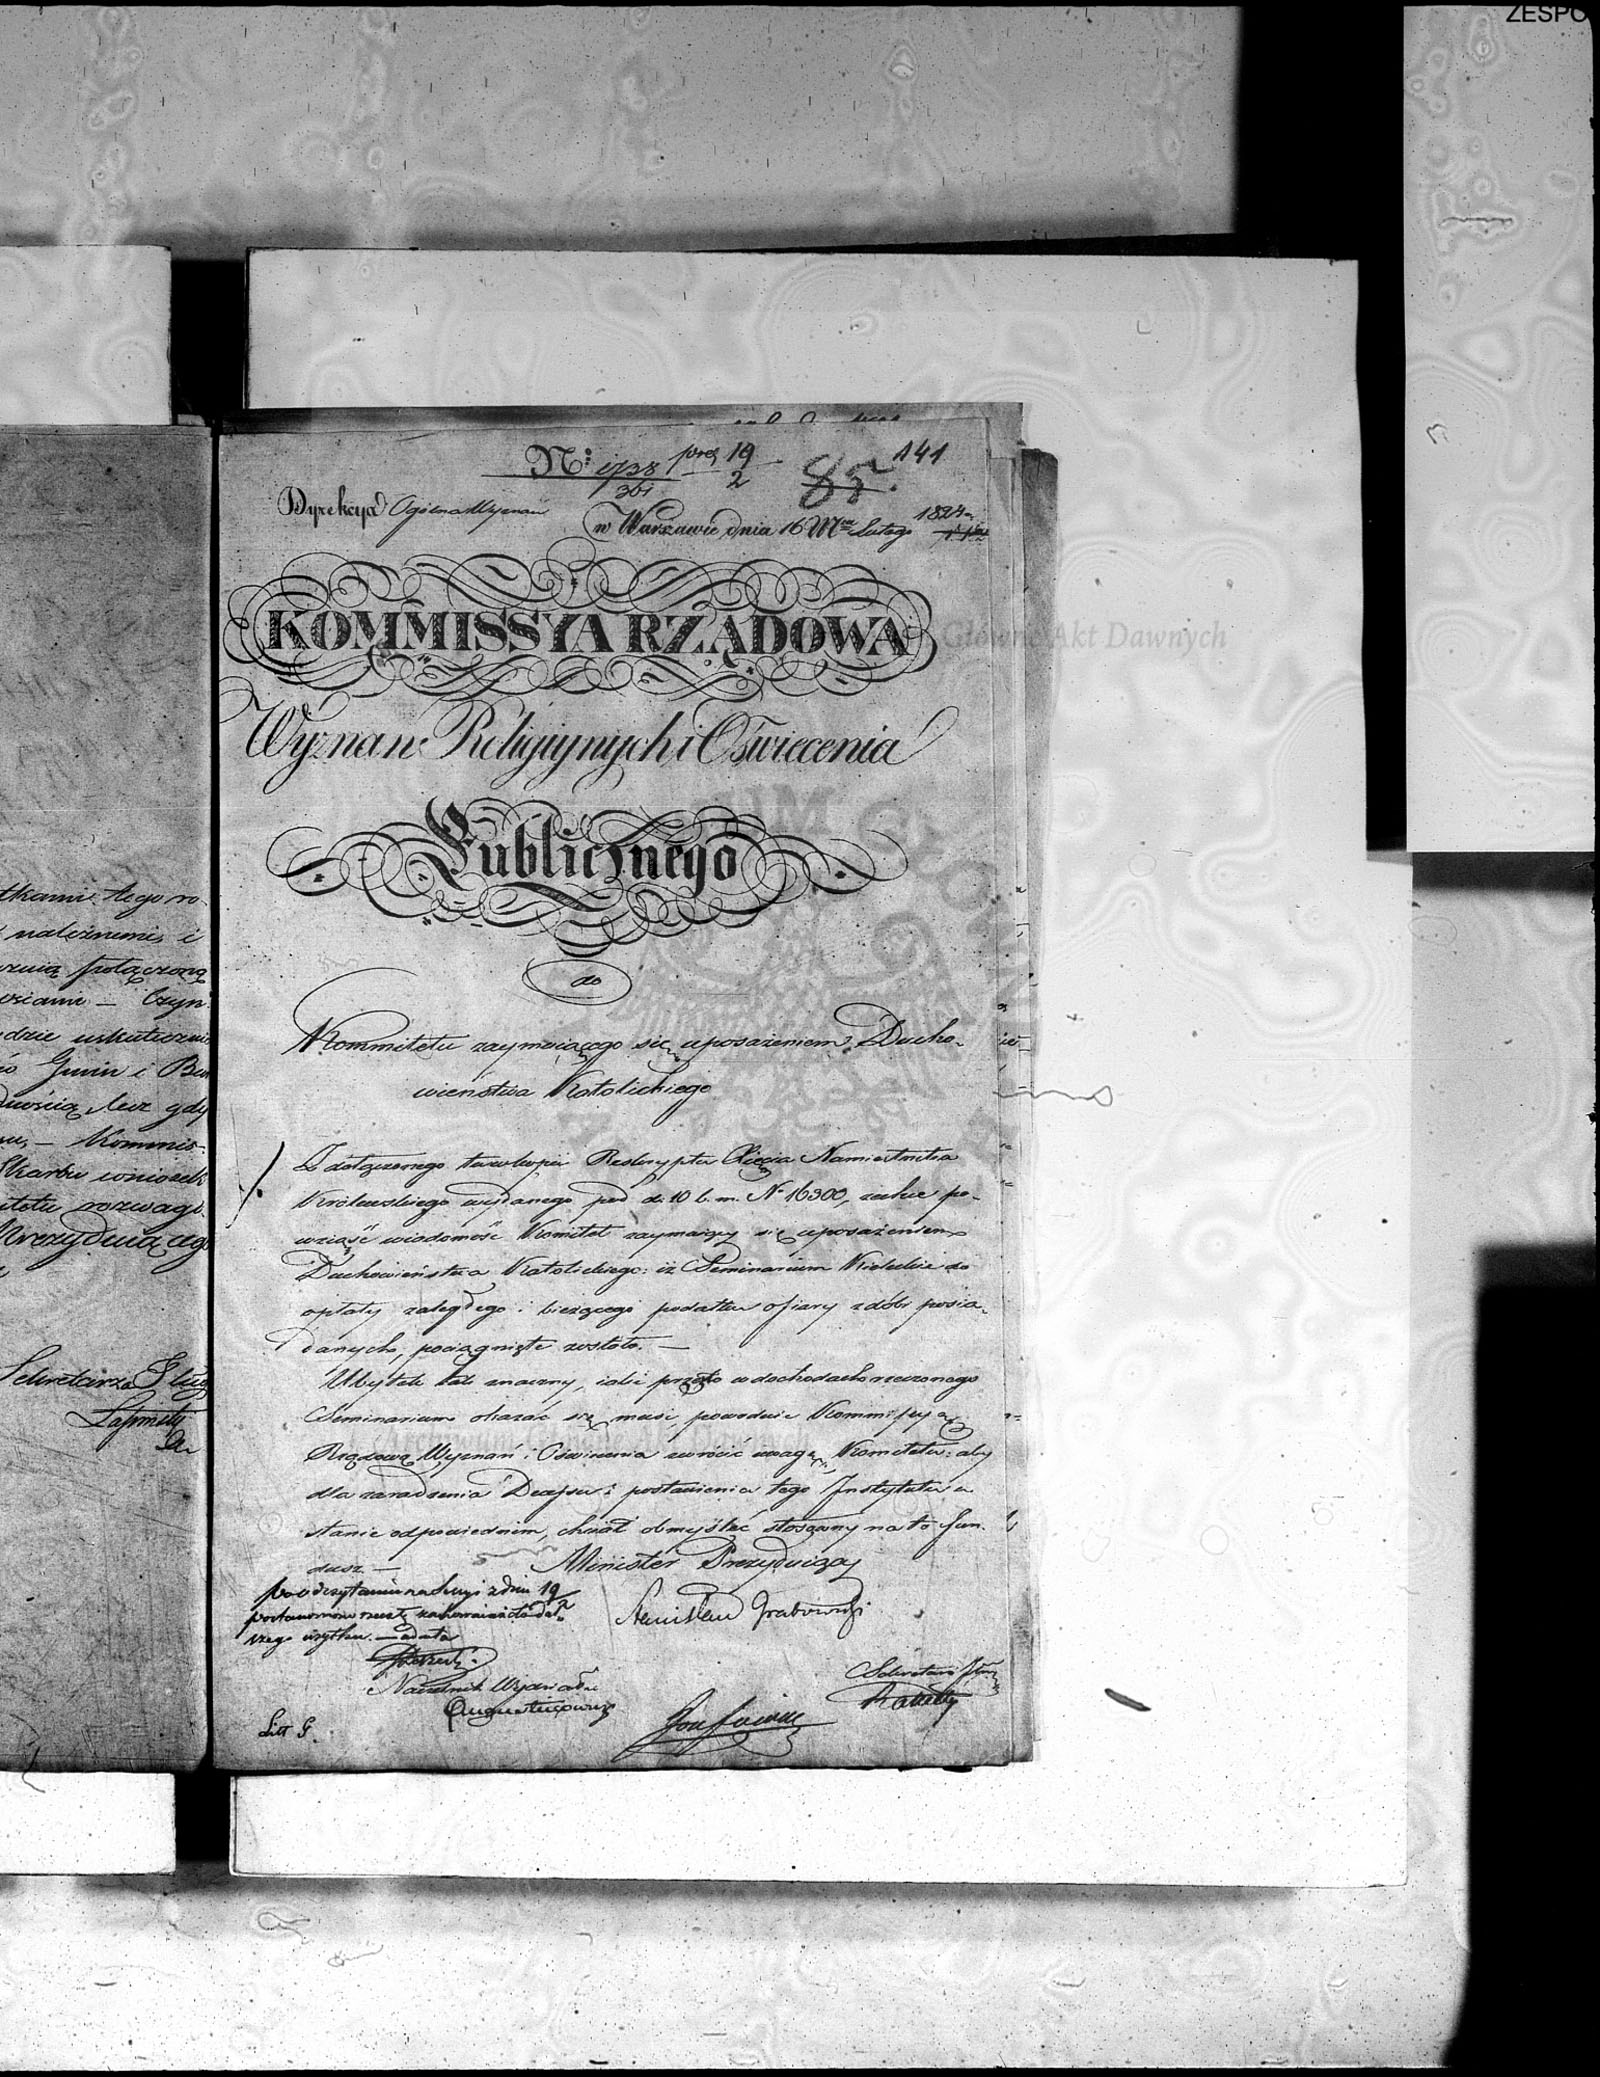 ZESPO
141
Nº 1738 prez 19
361 2
85.
Dyrekcya Ogólna Wyznań
w Warszawie dnia 16 Mca Lutego 1824
KOMMISSYA RZĄDOWA
Wyznań Religiynych i Oświecenia
Publicznego
do
Kommitetu zaymuiącego się uposażeniem Ducho-
wieństwa Katolickiego
Z dołączonego tu w kopii Reskryptu Xięcia Namiestnika
Królewskiego wydanego pod d. 10 b. m. Nº 16300, zechce po-
wziąść wiadomość Komitet zaymuiący się uposażeniem
Duchowieństwa Katolickiego: iż Seminarium Kieleckie do
opłaty zaległego i bieżącego podatku ofiary z dóbr posia-
danych, pociągnięte zostało. —
Ubytek tak znaczny, iaki przeto w dochodach rzeczonego
Seminarium okazać się musi, powoduie Kommissyą
Rządową Wyznań i Oświecenia zwrócić uwagę Komitetu: aby
dla zaradzenia i postawienia tego Instytutu w
stanie odpowiednim, chciał obmyśleć stosowny na to fun-
dusz. —
Minister Prezyduiący
Stanisław Grabowski
Po odczytaniu na Sessyi z dnia 19
postanowiono resztę zachować do dal-
szego użytku. —
Naczelnik Wydziału
Augustinowicz
Sekretarz Jlny
Litt G.
tkami tego ro-
należnemi, i
połączoną
— Czyn-
dzie uskuteczni
Gmin i
lecz gdy
— Kommis-
Skarbu wniosek
rozwagi
Prezyduiącego
Sekretarza Jlnego
Główne Akt Dawnych
Archiwum Główne Akt Dawnych